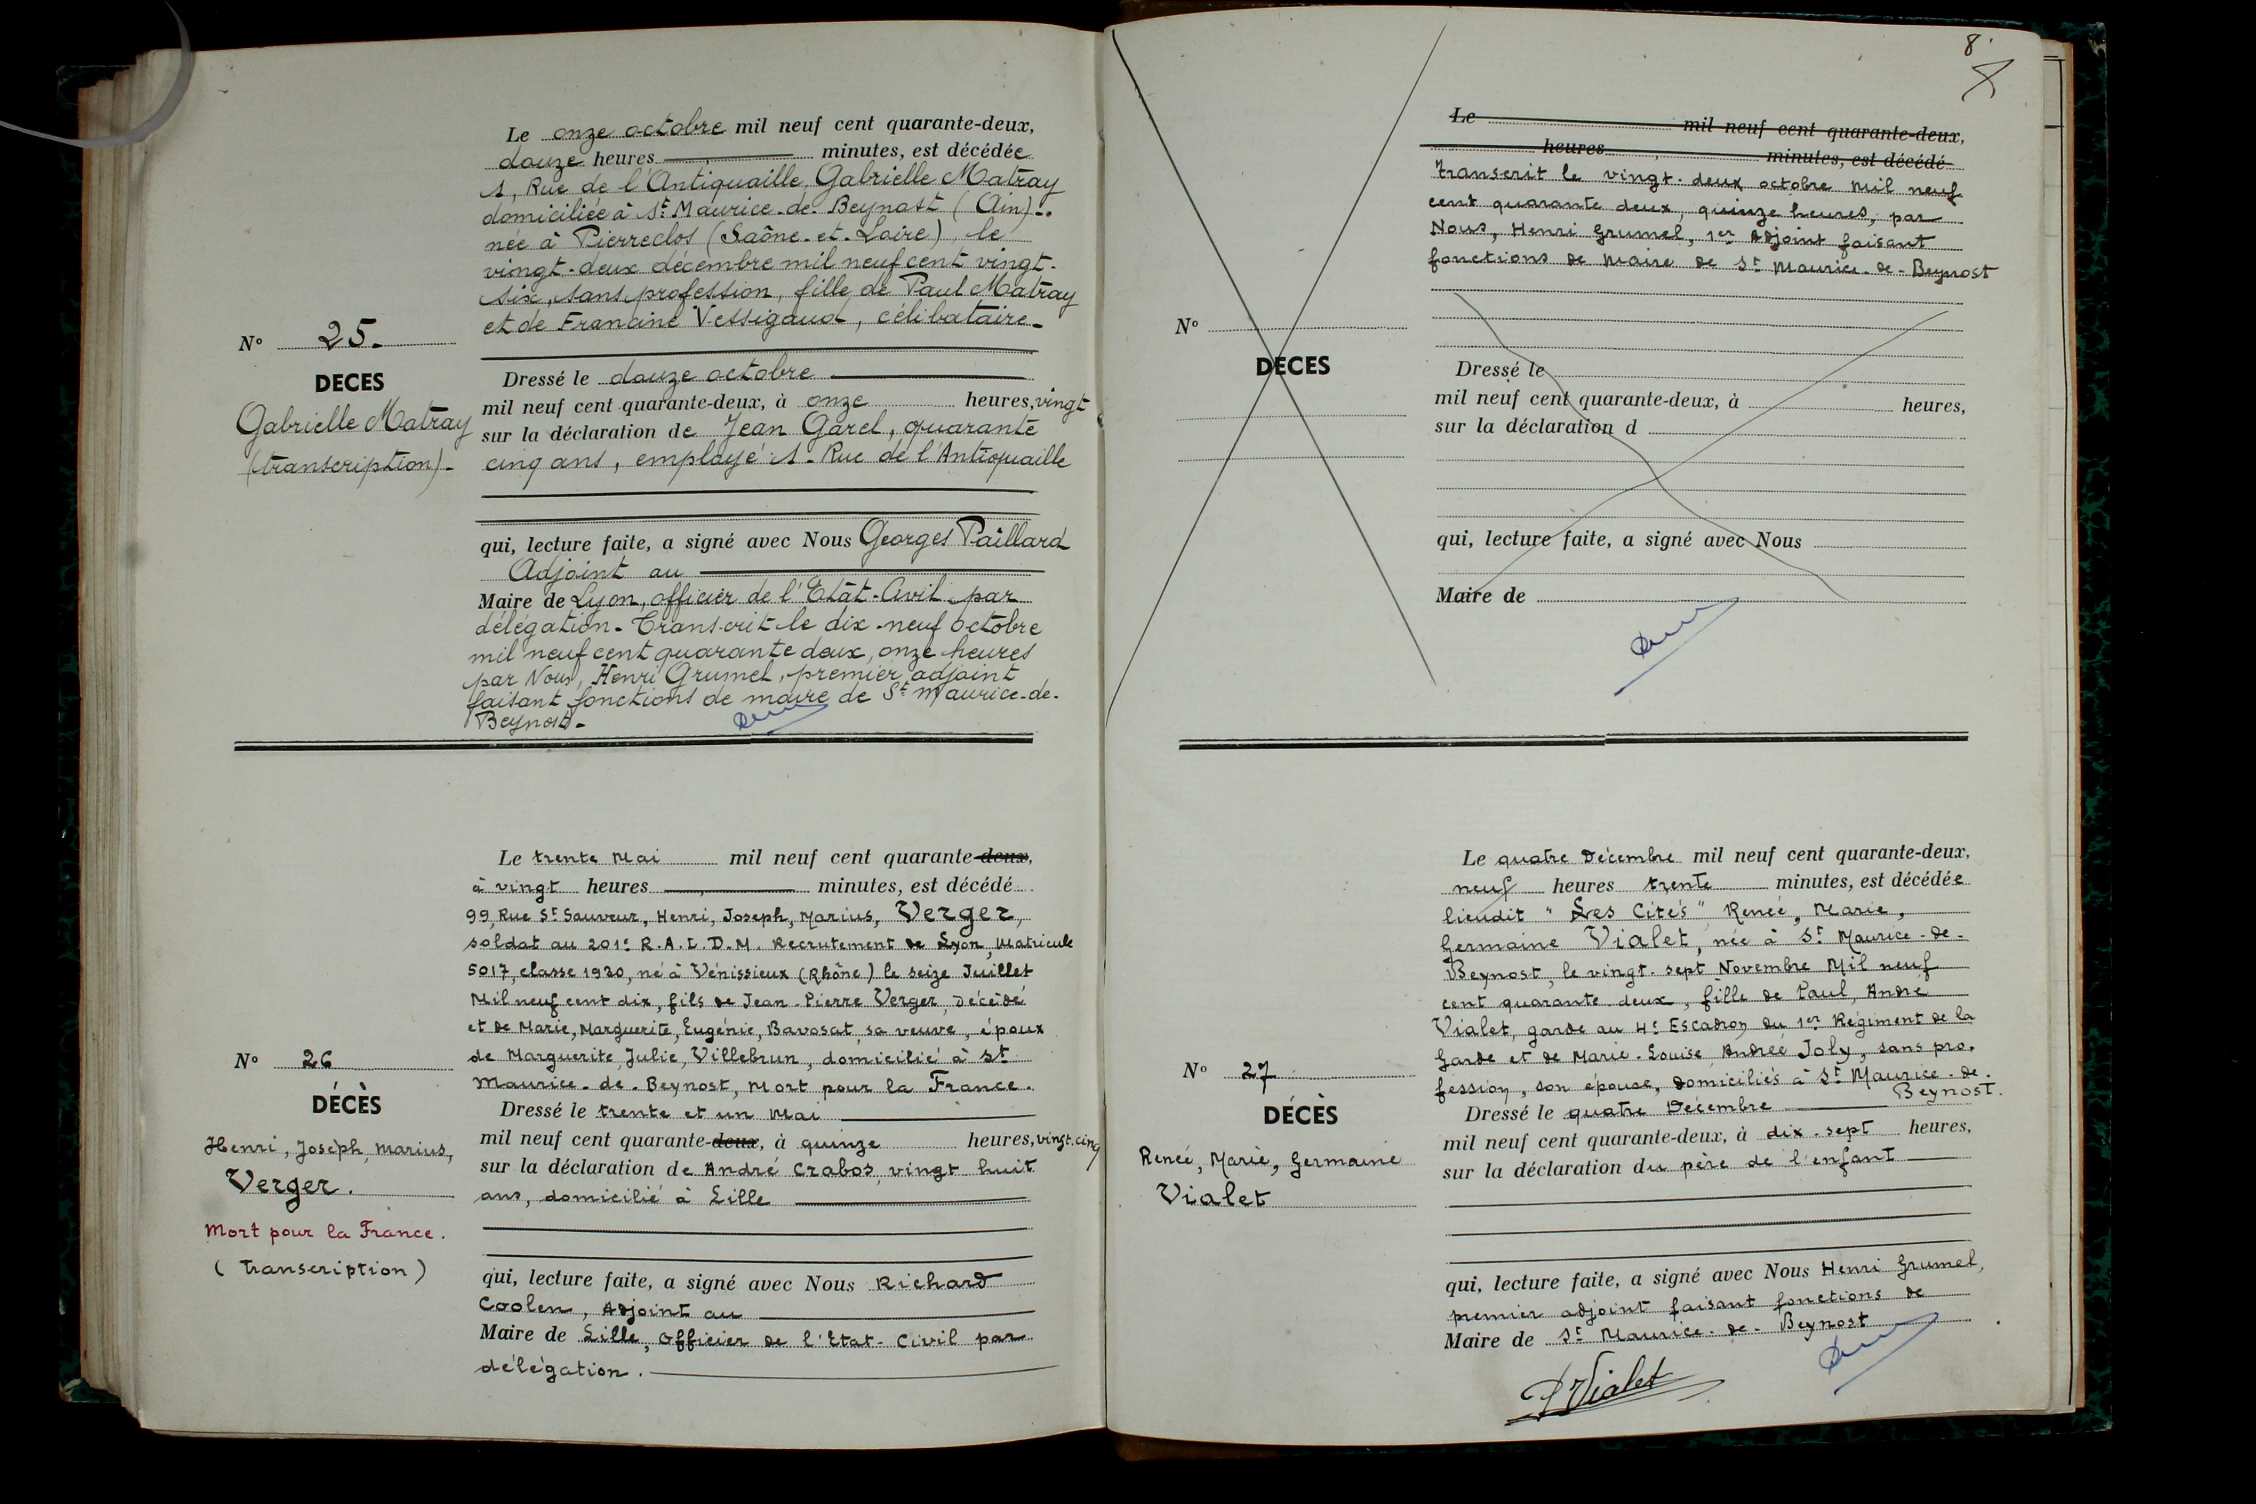 Le onze octobre mil neuf cent quarante-deux,
douze heures minutes, est décédée
1, Rue de l'Antiquaille, Gabrielle Matray
domiciliée à St Maurice-de-Beynost (Ain)-.
née à Pierreclos (Saône-et-Loire), le
vingt-deux décembre mil neuf cent vingt-
six, sans profession, fille de Paul Matray
et de Francine Vessigaud, célibataire-
N° 25-
DECES
Gabrielle Matray
(transcription)-
Dressé le douze octobre
mil neuf cent quarante-deux, à onze heures, vingt
sur la déclaration de Jean Garel, quarante
cinq ans, employé 1- Rue de l'Antiquaille
qui, lecture faite, a signé avec Nous Georges Paillard
Adjoint au
Maire de Lyon, officier de l'Etat-Civil par
délégation- Transcrit le dix-neuf octobre
mil neuf cent quarante deux, onze heures
par Nous, Henri Grumel, premier adjoint
faisant fonctions de maire de St Maurice-de-
Beynost-
Le trente Mai mil neuf cent quarante-deux,
à vingt heures minutes, est décédé
99, Rue St Sauveur, Henri, Joseph, Marius, Verger,
soldat au 201e R.A.L.D.M. Recrutement de Lyon, Matricule
5017, classe 1930, né à Vénissieux (Rhône) le seize Juillet
Mil neuf cent dix, fils de Jean-Pierre Verger, Décédé
et de Marie, Marguerite, Eugénie, Bavosat, sa veuve, époux
de Marguerite, Julie, Villebrun, domicilié à St
Maurice-de-Beynost, Mort pour la France.
N° 26
DÉCÈS
Henri, Joseph, Marius,
Verger.
Mort pour la France.
(Transcription)
Dressé le trente et un Mai
mil neuf cent quarante-deux, à quinze heures, vingt-cinq
sur la déclaration de André Crabos, vingt huit
ans, domicilié à Lille
qui, lecture faite, a signé avec Nous Richard
Coolen, Adjoint au
Maire de Lille, Officier de l'Etat-Civil par
délégation.
8
Le mil neuf cent quarante-deux,
heures minutes, est décédé
Transcrit le vingt-deux octobre Mil neuf
cent quarante deux, quinze heures, par
Nous, Henri Grumel, 1er Adjoint faisant
fonctions de Maire de St Maurice-de-Beynost
N°
DECES
Dressé le
mil neuf cent quarante-deux, à heures,
sur la déclaration d
qui, lecture faite, a signé avec Nous
Maire de
Le quatre Décembre mil neuf cent quarante-deux,
neuf heures trente minutes, est décédée
lieudit "Les Cités" Renée, Marie,
Germaine Vialet, née à St Maurice-de-
Beynost, le vingt-sept Novembre Mil neuf
cent quarante deux, fille de Paul, André
Vialet, garde au 4e Escadron du 1er Régiment de la
Garde et de Marie-Louise Andrée Joly, sans pro-
fession, son épouse, domiciliés à St Maurice-de-
Beynost.
N° 27
DÉCÈS
Renée, Marie, Germaine
Vialet
Dressé le quatre Décembre
mil neuf cent quarante-deux, à dix-sept heures,
sur la déclaration du père de l'enfant
qui, lecture faite, a signé avec Nous Henri Grumel,
premier adjoint faisant fonctions de
Maire de St Maurice-de-Beynost
P Vialet